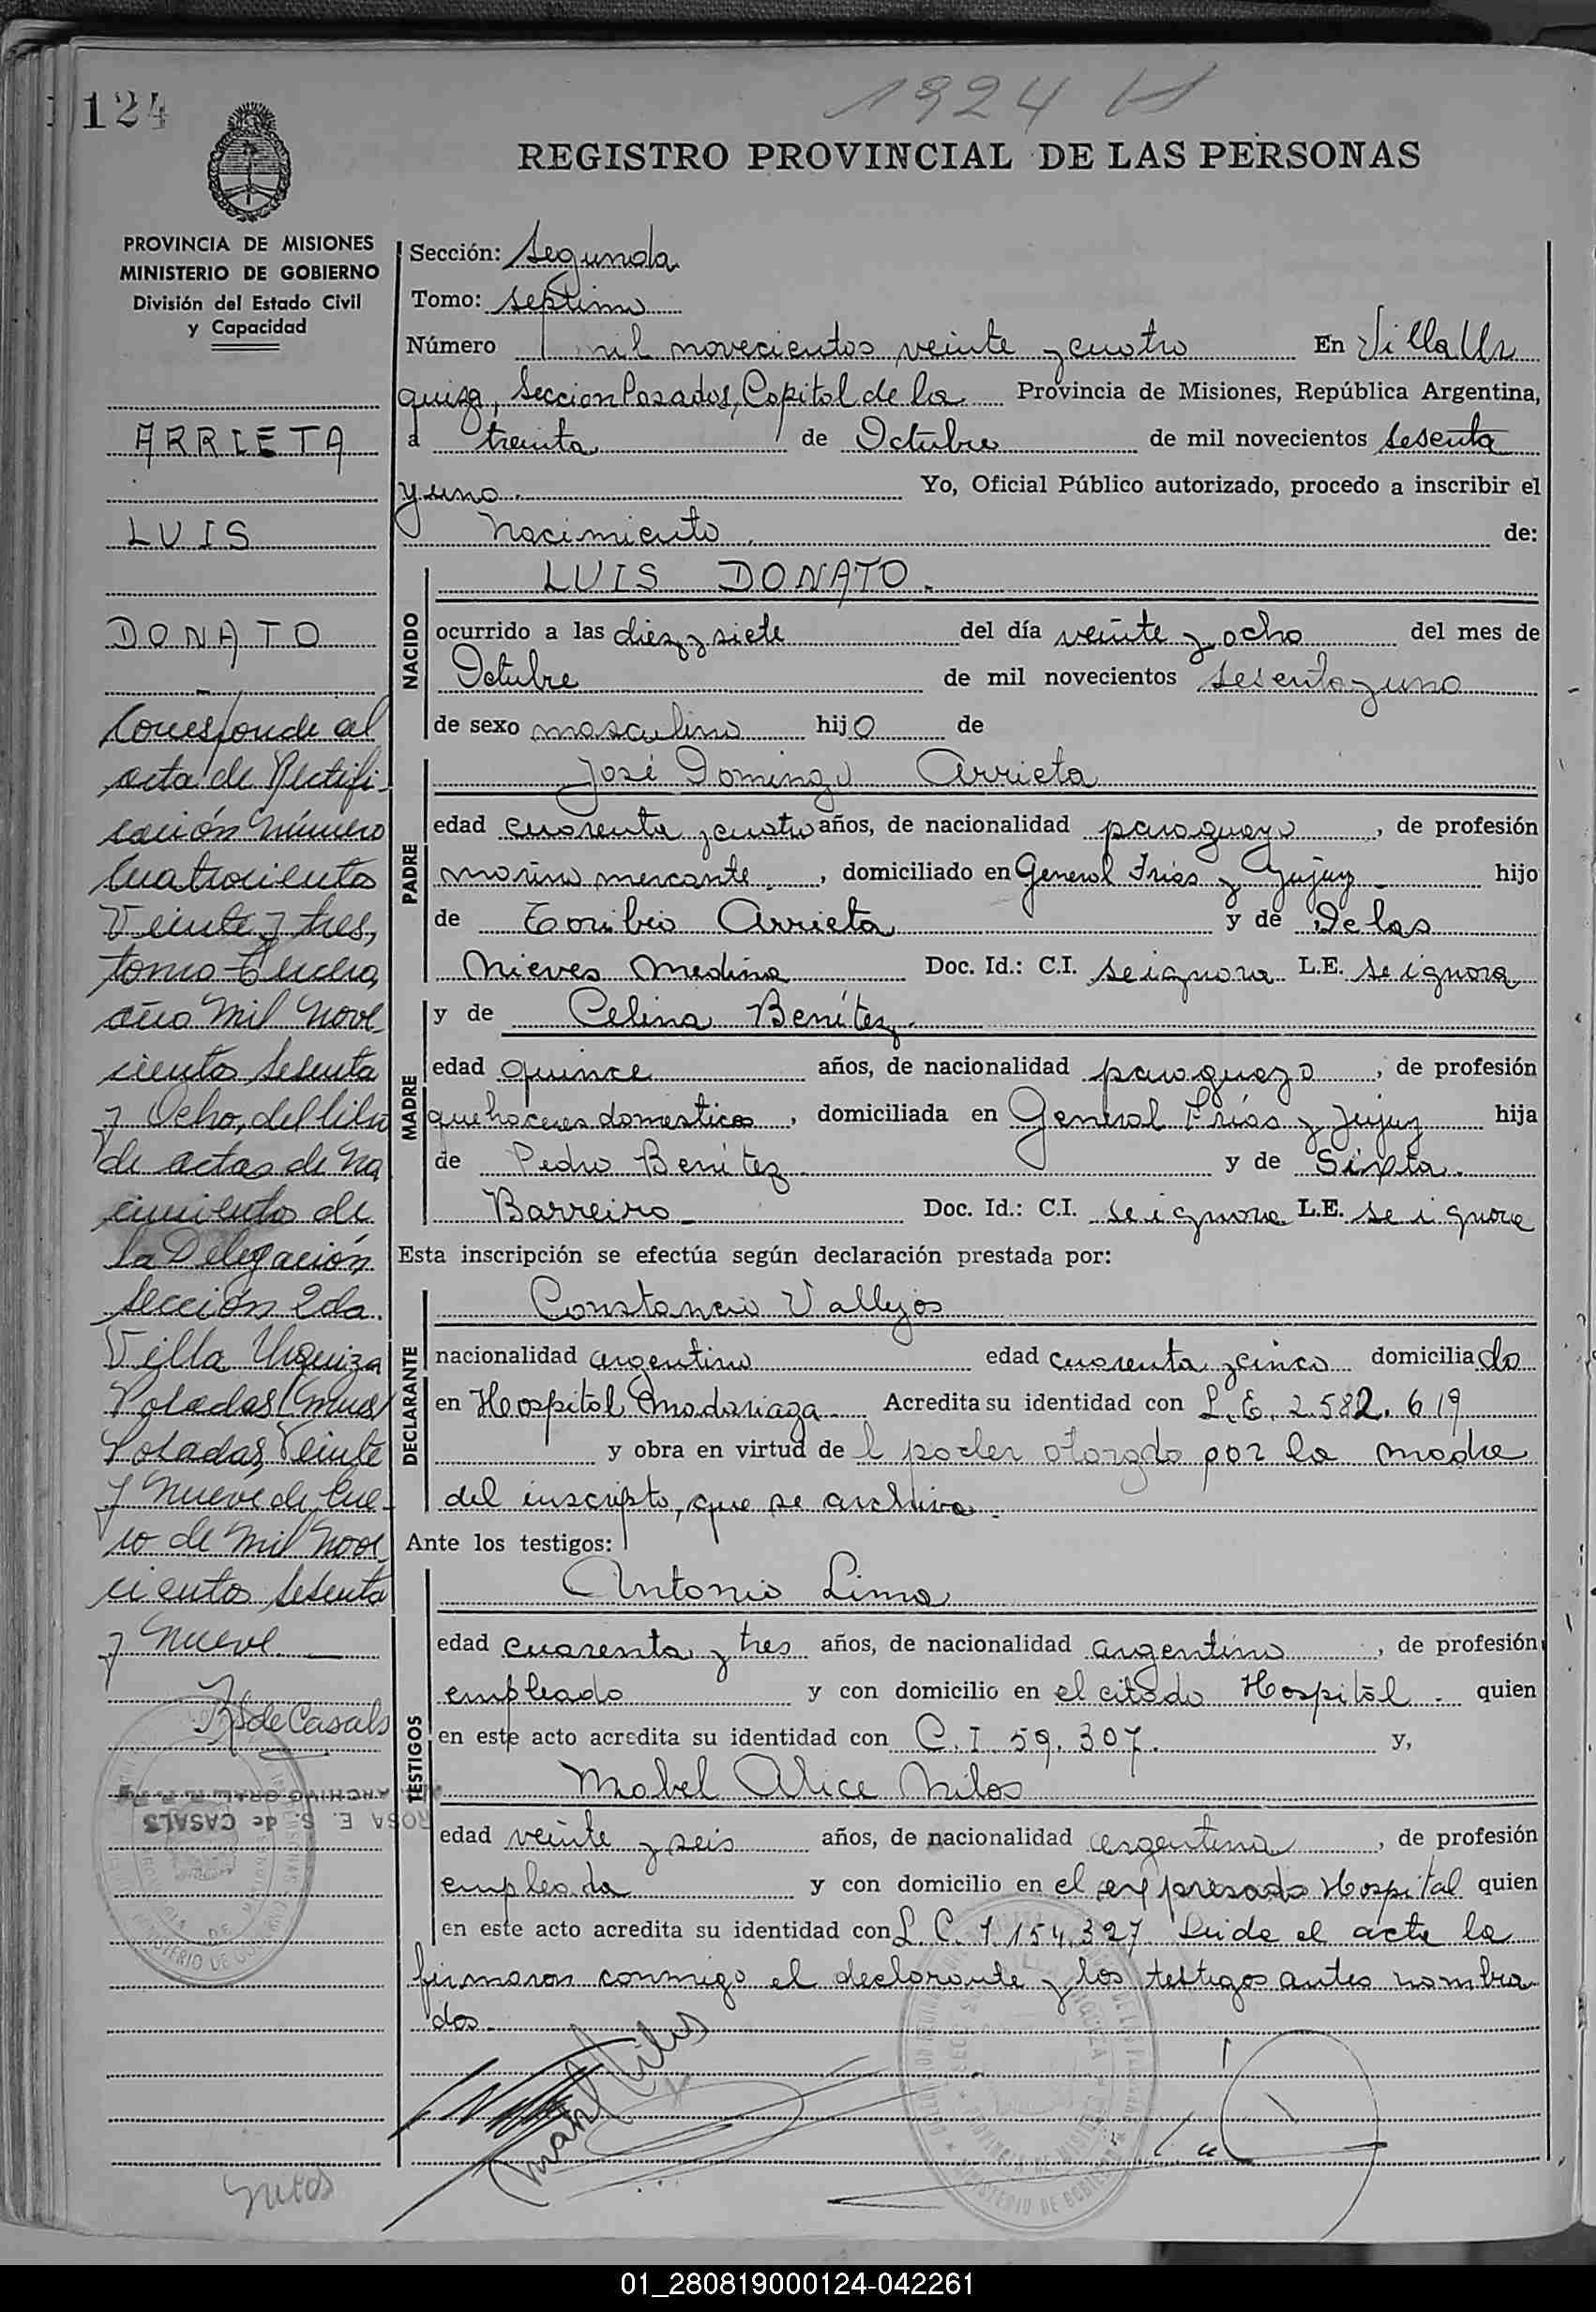 124
1924 H
REGISTRO PROVINCIAL DE LAS PERSONAS
PROVINCIA DE MISIONES
MINISTERIO DE GOBIERNO
División del Estado Civil
y Capacidad
ARRIETA
LUIS
DONATO
Corresponde al
acta de Rectifi-
cación número
Cuatrocientos
Veinte y tres,
tomo tercero,
año mil nove-
cientos sesenta
y Ocho, del libro
de actas de na
cimientos de
la Delegación
Sección 2da.
Villa Urquiza
Posadas
Posadas, Veinte
y nueve de Ene-
ro de mil nove-
cientos sesenta
y nueve.
RS de Casals
ROSA E. S. de CASALS
Sección: Segunda
Tomo: septimo
Número mil novecientos veinte y cuatro En Villa Ur
quiza, Seccion Posadas, Capital de la Provincia de Misiones, República Argentina,
a treinta de Octubre de mil novecientos sesenta
y uno. Yo, Oficial Público autorizado, procedo a inscribir el
Nacimiento de:
NACIDO
LUIS DONATO.
ocurrido a las diez y siete del día veinte y ocho del mes de
Octubre de mil novecientos sesenta y uno
de sexo masculino hijo de
PADRE
José Domingo Arrieta
edad cuarenta y cuatro años, de nacionalidad paraguayo, de profesión
marino mercante, domiciliado en General Frias y Jujuy hijo
de Toribio Arrieta y de De las
Nieves Medina Doc. Id.: C.I. se ignora L.E. se ignora
MADRE
y de Celina Benítez.
edad quince años, de nacionalidad paraguaya, de profesión
quehaceres domesticos, domiciliada en General Frías y Jujuy hija
de Pedro Benítez y de Sixta
Barreiro Doc. Id.: C.I. se ignora L.E. se ignora
Esta inscripción se efectúa según declaración prestada por:
DECLARANTE
Constancio Vallejos
nacionalidad argentino edad cuarenta y cinco domiciliado
en Hospital Madariaga Acredita su identidad con L.E. 2.582.619
y obra en virtud del poder otorgado por la madre
del inscripto, que se archiva.
Ante los testigos:
TESTIGOS
Antonio Lima
edad cuarenta y tres años, de nacionalidad argentino, de profesión
empleado y con domicilio en el citado Hospital quien
en este acto acredita su identidad con C. I. 59.307. y,
Mabel Alice Nilos
edad veinte y seis años, de nacionalidad argentina, de profesión
empleada y con domicilio en el expresado Hospital quien
en este acto acredita su identidad con L. C. 1.154.327 Leida el acta la
firmaron conmigo el declarante y los testigos antes nombra-
dos.
01_280819000124-042261